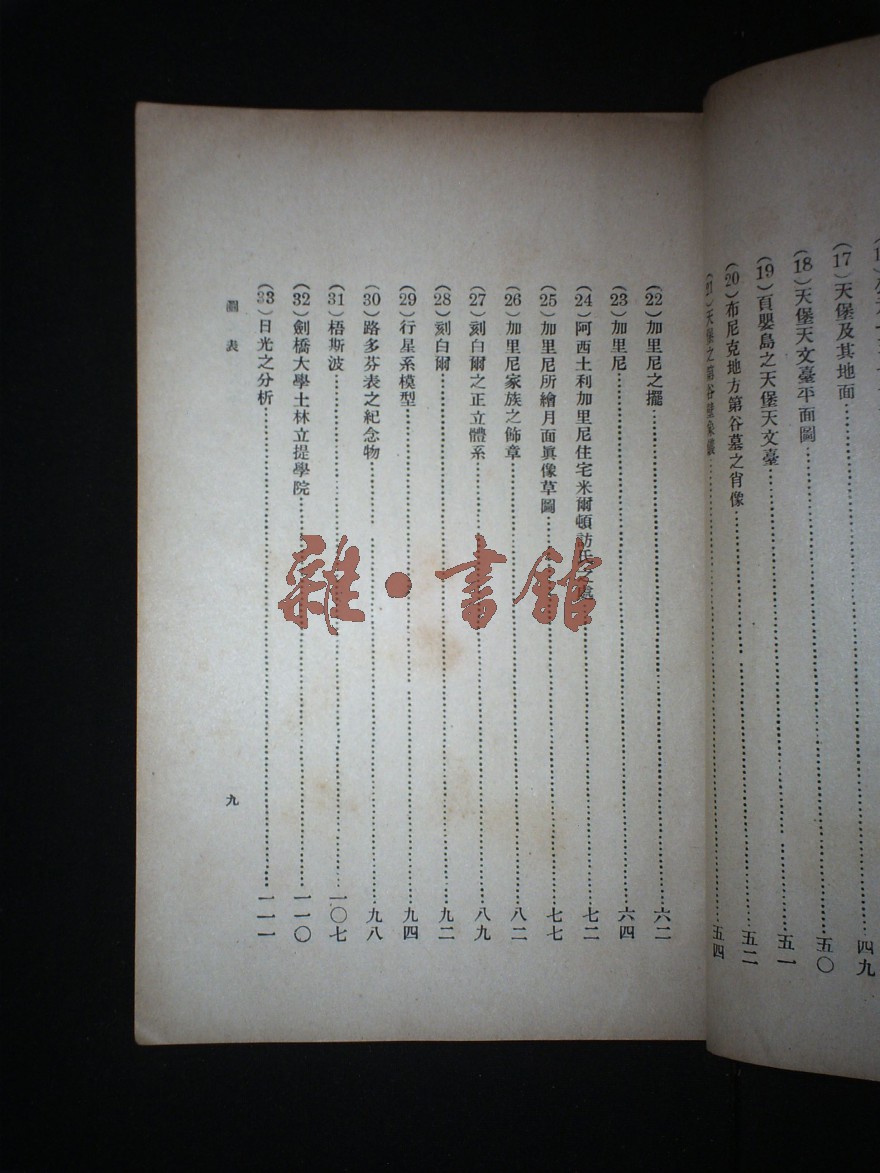 (17)天堡及其地面……四九
(18)天堡天文臺平面圖……五〇
(19)頁嬰島之天堡天文臺……五一
(20)布尼克地方第谷墓之肖像……五二
(21)天堡之第谷壁象儀……五四
(22)加里尼之擺……六二
(23)加里尼……六四
(24)阿西土利加里尼住宅米爾頓訪氏之處……七二
(25)加里尼所繪月面眞像草圖……七七
(26)加里尼家族之飾章……八二
(27)刻白爾之正立體系……八九
(28)刻白爾……九二
(29)行星系模型……九四
(30)路多芬表之紀念物……九八
(31)梧斯波……一〇七
(32)劍橋大學土林立提學院……一一〇
(33)日光之分析……一一一
圖表
九
雜·書館